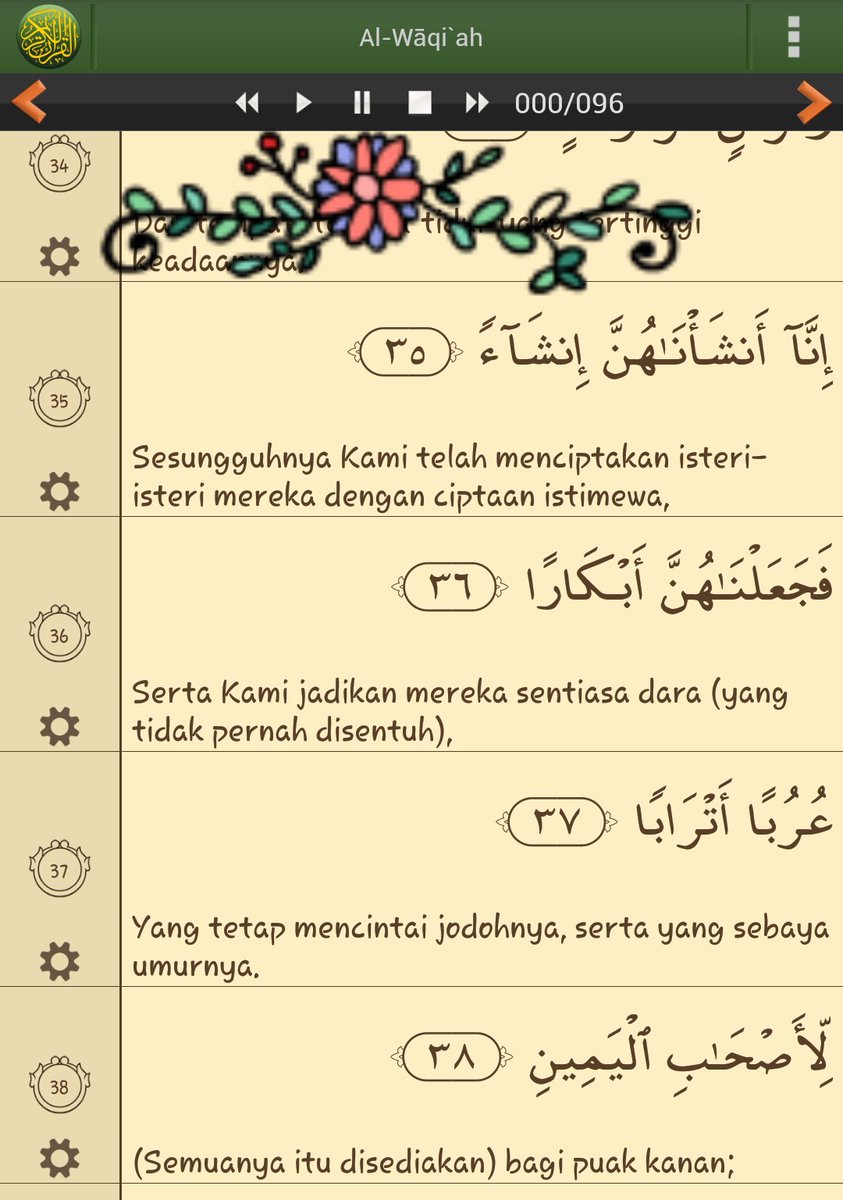 Al-Wāqi`ah
000/096
34
tertinggi
keadaannya.
إِنَّآ أَنشَأْنَـٰهُنَّ إِنشَآءً ٣٥
35
Sesungguhnya Kami telah menciptakan isteri-
isteri mereka dengan ciptaan istimewa,
فَجَعَلْنَـٰهُنَّ أَبْكَارًا ٣٦
36
Serta Kami jadikan mereka sentiasa dara (yang
tidak pernah disentuh),
عُرُبًا أَتْرَابًا ٣٧
37
Yang tetap mencintai jodohnya, serta yang sebaya
umurnya.
لِّأَصْحَـٰبِ ٱلْيَمِينِ ٣٨
38
(Semuanya itu disediakan) bagi puak kanan;